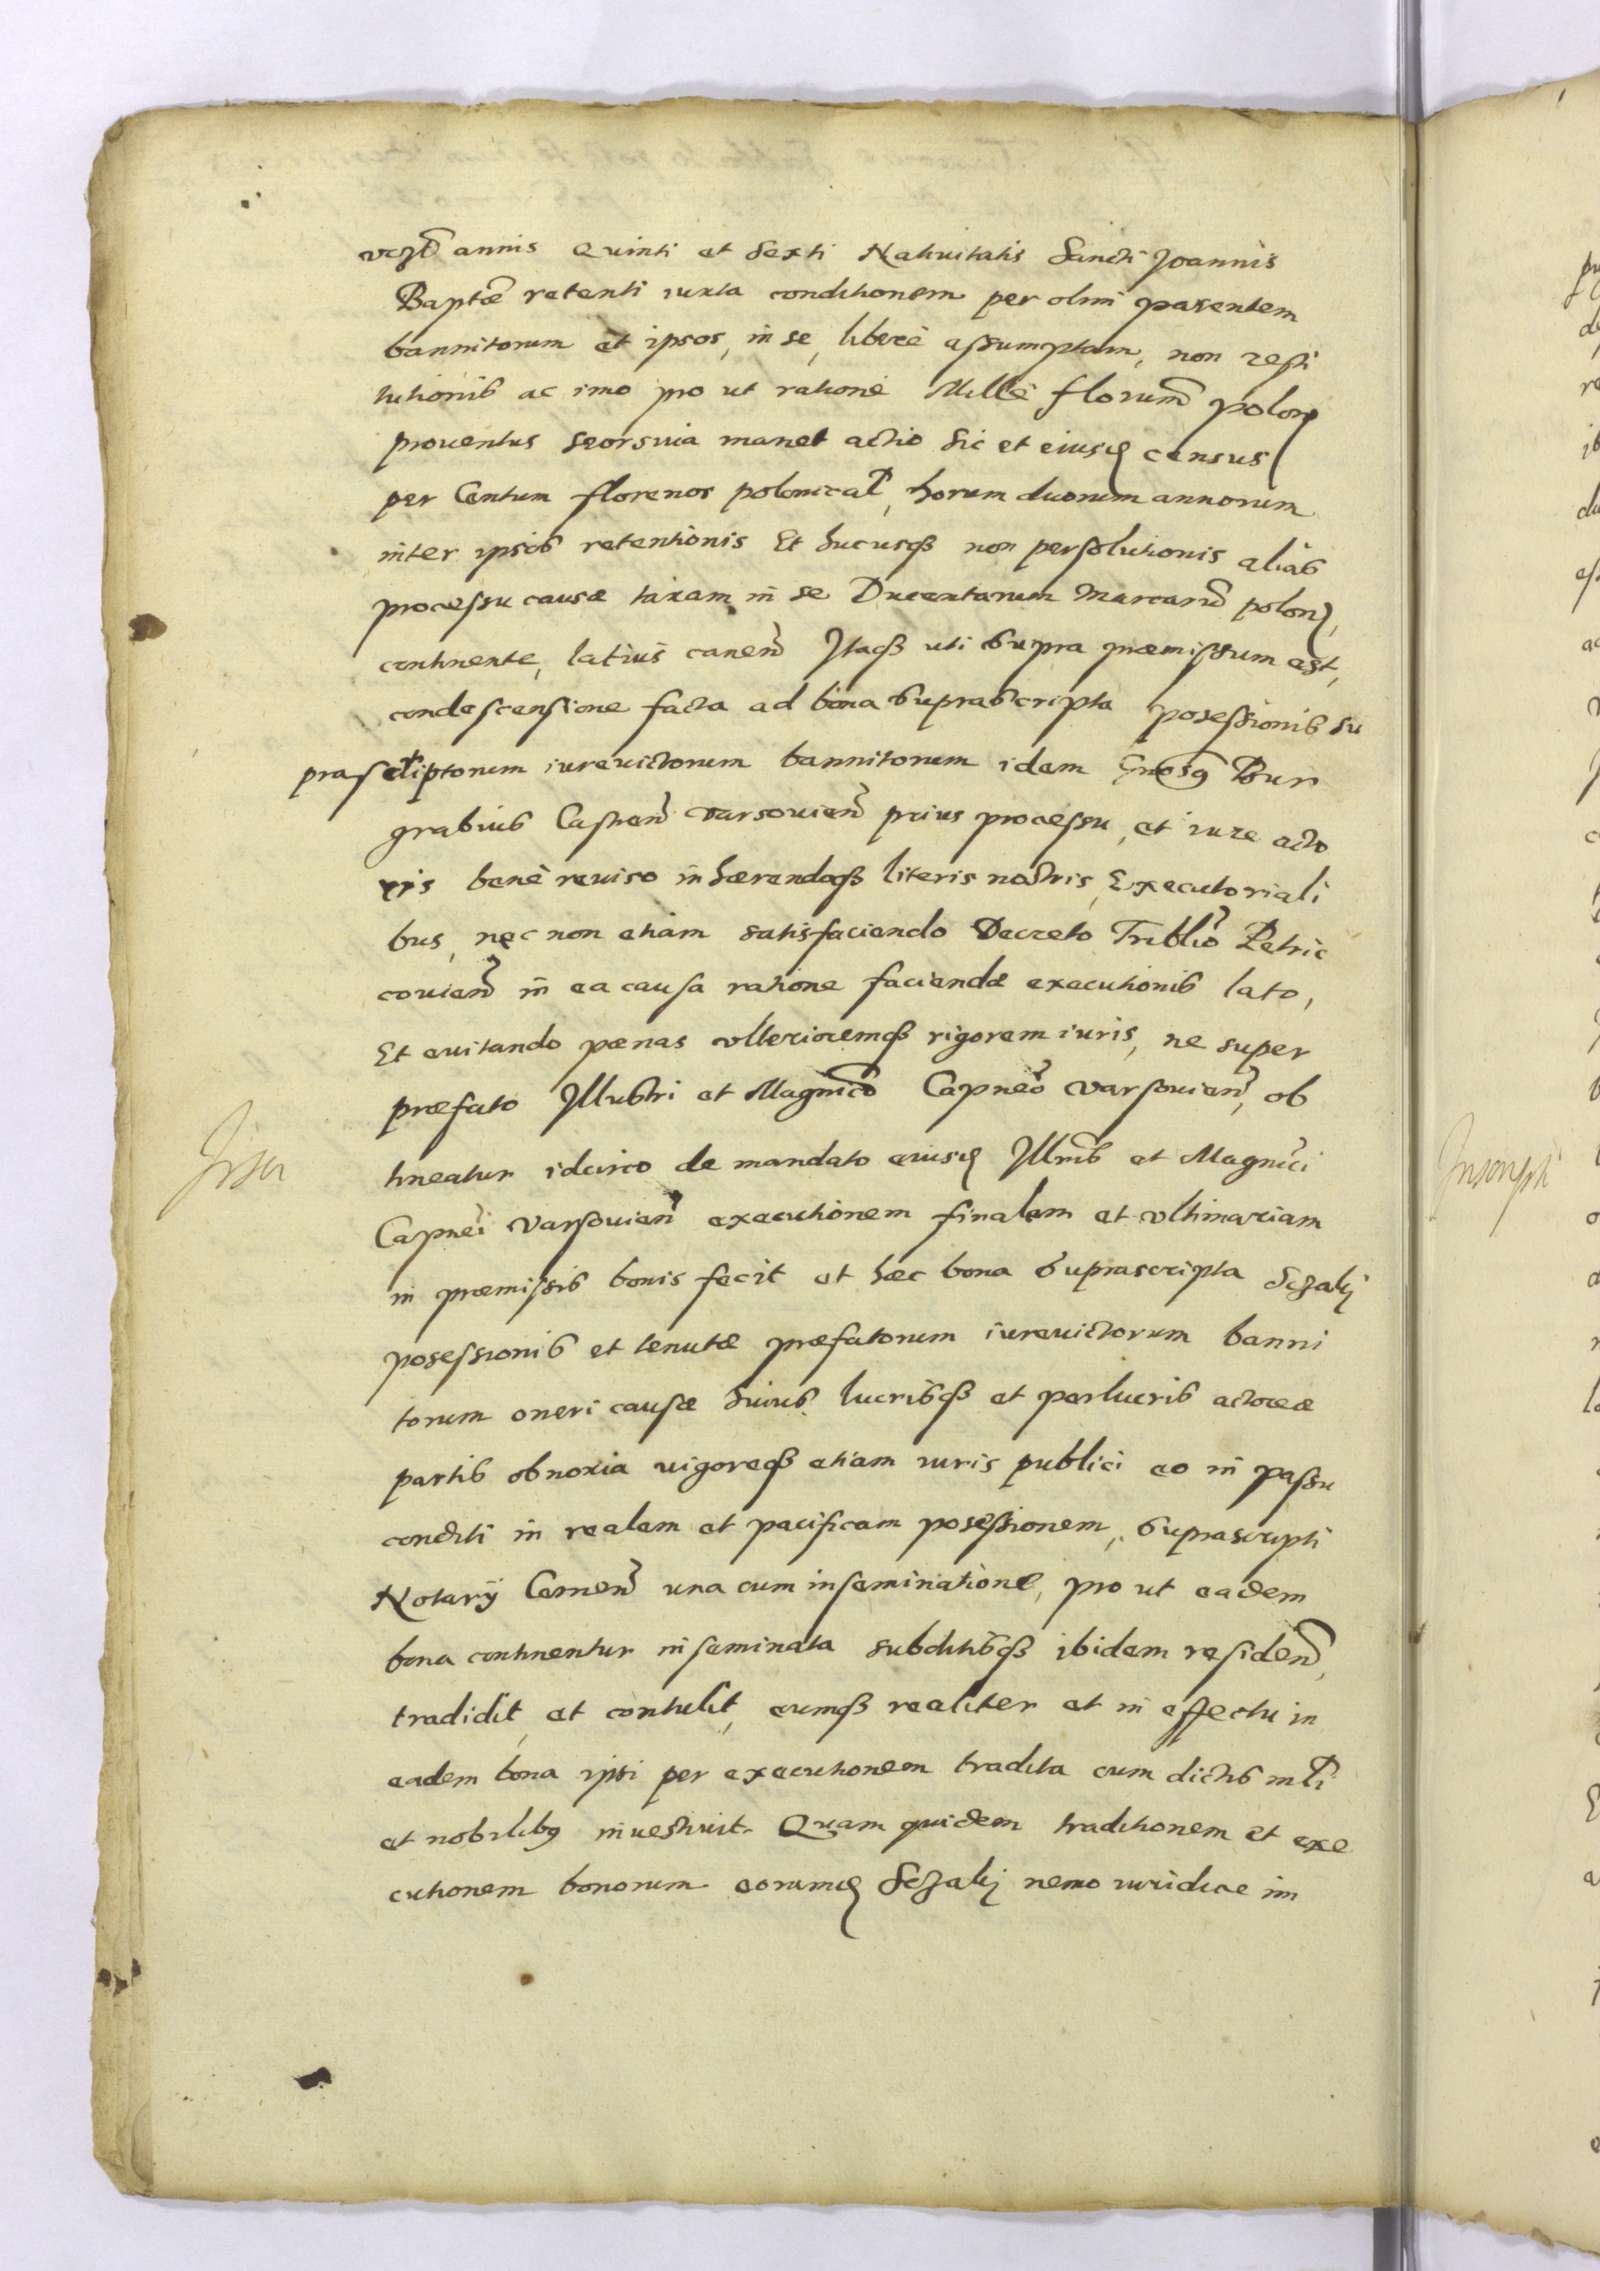 annis Quinti et Sexti Nativitatis Sancti Joannis
Baptæ retenti iuxta conditionem per olim parentem
bannitorum et ipsos, in se, liberè assumptam, non resti
tutionis ac imo pro ut rationè Mille florum̃ polon
proventus seorsiva manet actio sic et eiusq census
per Centum florenos polonical, horum duorum annorum
inter ipsos retentionis Et hucusq non persolutionis alias
processu causæ taxam in se Ducentarum Marcarũ polon,
continente, latius canen̉ Itaq uti supra præmissum est,
condescensione facta ad bona suprascripta posessionis su
prascriptorum iurevictorum bannitorum idem Gnosq Bur
grabius Castren̉ varsovien̉ prius processu, et iure acto
ris benè reviso inhærendoq literis nostris, Executoriali
bus, nec non etiam satisfaciendo Decreto Triblio Petric
covien̉ in ea causa ratione faciendæ executionis lato,
Et evitando pœnas ulterioremq rigorem iuris, ne super
præfato Illustri et Magnico Capneo varsovien̉, ob
tineatur idcirco de mandato eiusq Illris et Magnici
Capnei varsovien̉ executionem finalem et ultimariam
in præmissis bonis fecit et hæc bona suprascripta
posessionis et tenutæ præfatorum iurevictorum banni
torum oneri causæ huius lucrisq et perlucris actoreæ
partis obnoxia vigoreq etiam iuris publici eo in passu
conditi in realem et pacificam posessionem, suprascripti
Notarij una cum inseminatione, pro ut eadem
bona continentur inseminata subditisq ibidem residen̉,
tradidit, et contulit, eumq realiter et in effectu in
eadem bona ipsi per executionem tradita cum dictis mli
et nobilibq investivit. Quam quidem traditionem et exe
cutionem bonorum eorumq nemo iuridice im